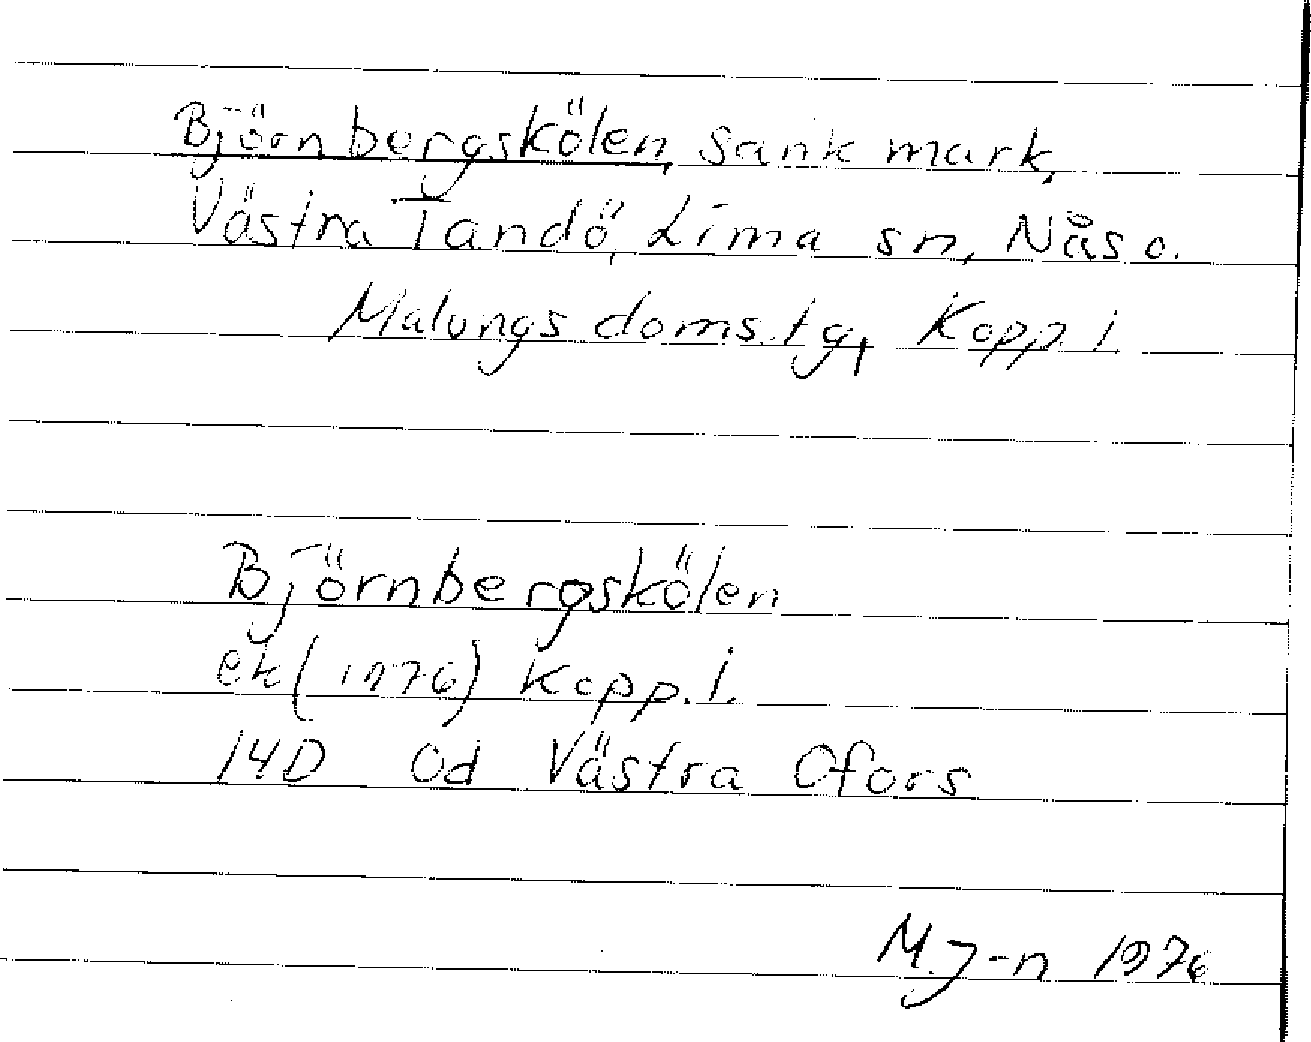 Björnbergskölen, sank mark,
Västra Tandö, Lima sn, Nås o.
Malungs doms.tg, Kopp. l
Björnbergskölen
ek (1976) Kopp. l.
14D 0d Västra Ofors
M.J-n 1976